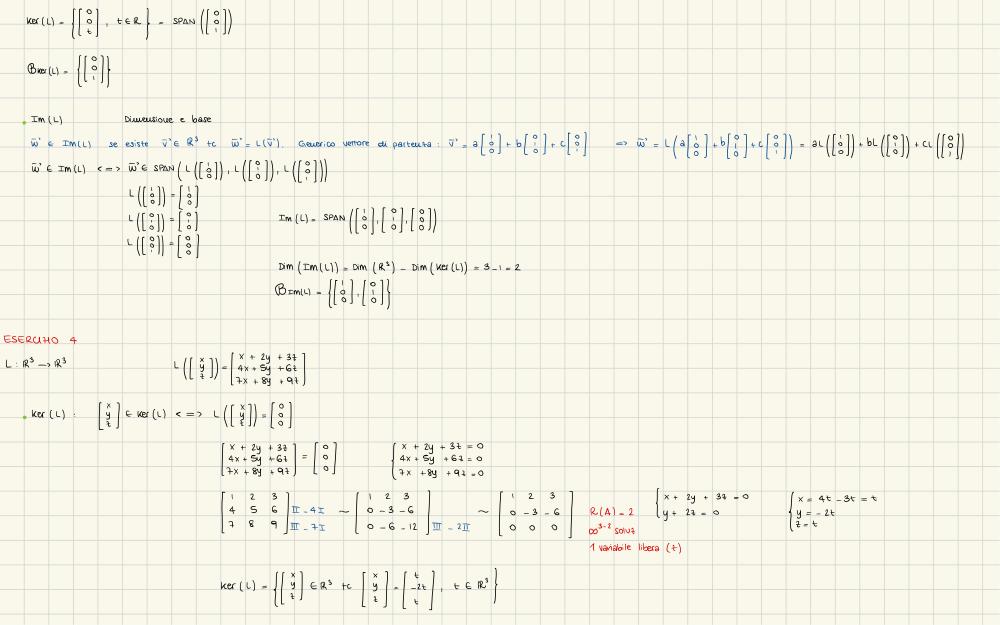 Ker(L) = {[0 0 t], t ∈ R} = SPAN([0 0 1])
Bker(L) = {[0 0 1]}
Im(L) Dimensione e base
w⃗ ∈ Im(L) se esiste v⃗ ∈ R³ tc w⃗ = L(v⃗). Generico vettore di partenza: v⃗ = a[1 0 0] + b[0 1 0] + c[0 0 1] => w⃗ = L(a[1 0 0] + b[0 1 0] + c[0 0 1]) = aL([1 0 0]) + bL([0 1 0]) + cL([0 0 1])
w⃗ ∈ Im(L) <=> w⃗ ∈ SPAN(L([1 0 0]), L([0 1 0]), L([0 0 1]))
L([1 0 0]) = [1 0 0]
L([0 1 0]) = [0 1 0]
L([0 0 1]) = [0 0 0]
Im(L) = SPAN([1 0 0], [0 1 0], [0 0 0])
Dim(Im(L)) = Dim(R³) - Dim(Ker(L)) = 3 - 1 = 2
BIm(L) = {[1 0 0], [0 1 0]}
ESERCIZIO 4
L : R³ → R³ L([x y z]) = [x + 2y + 3z 4x + 5y + 6z 7x + 8y + 9z]
Ker(L) : [x y z] ∈ Ker(L) <=> L([x y z]) = [0 0 0]
[x + 2y + 3z 4x + 5y + 6z 7x + 8y + 9z] = [0 0 0] {x + 2y + 3z = 0 4x + 5y + 6z = 0 7x + 8y + 9z = 0
[1 2 3 4 5 6 7 8 9] II - 4I III - 7I ~ [1 2 3 0 -3 -6 0 -6 -12] III - 2II ~ [1 2 3 0 -3 -6 0 0 0] R(A) = 2 {x + 2y + 3z = 0 y + 2z = 0 {x = 4t - 3t = t y = -2t z = t
∞³⁻² soluz
1 variabile libera (z)
Ker(L) = {[x y z] ∈ R³ tc [x y z] = [t -2t t], t ∈ R³}